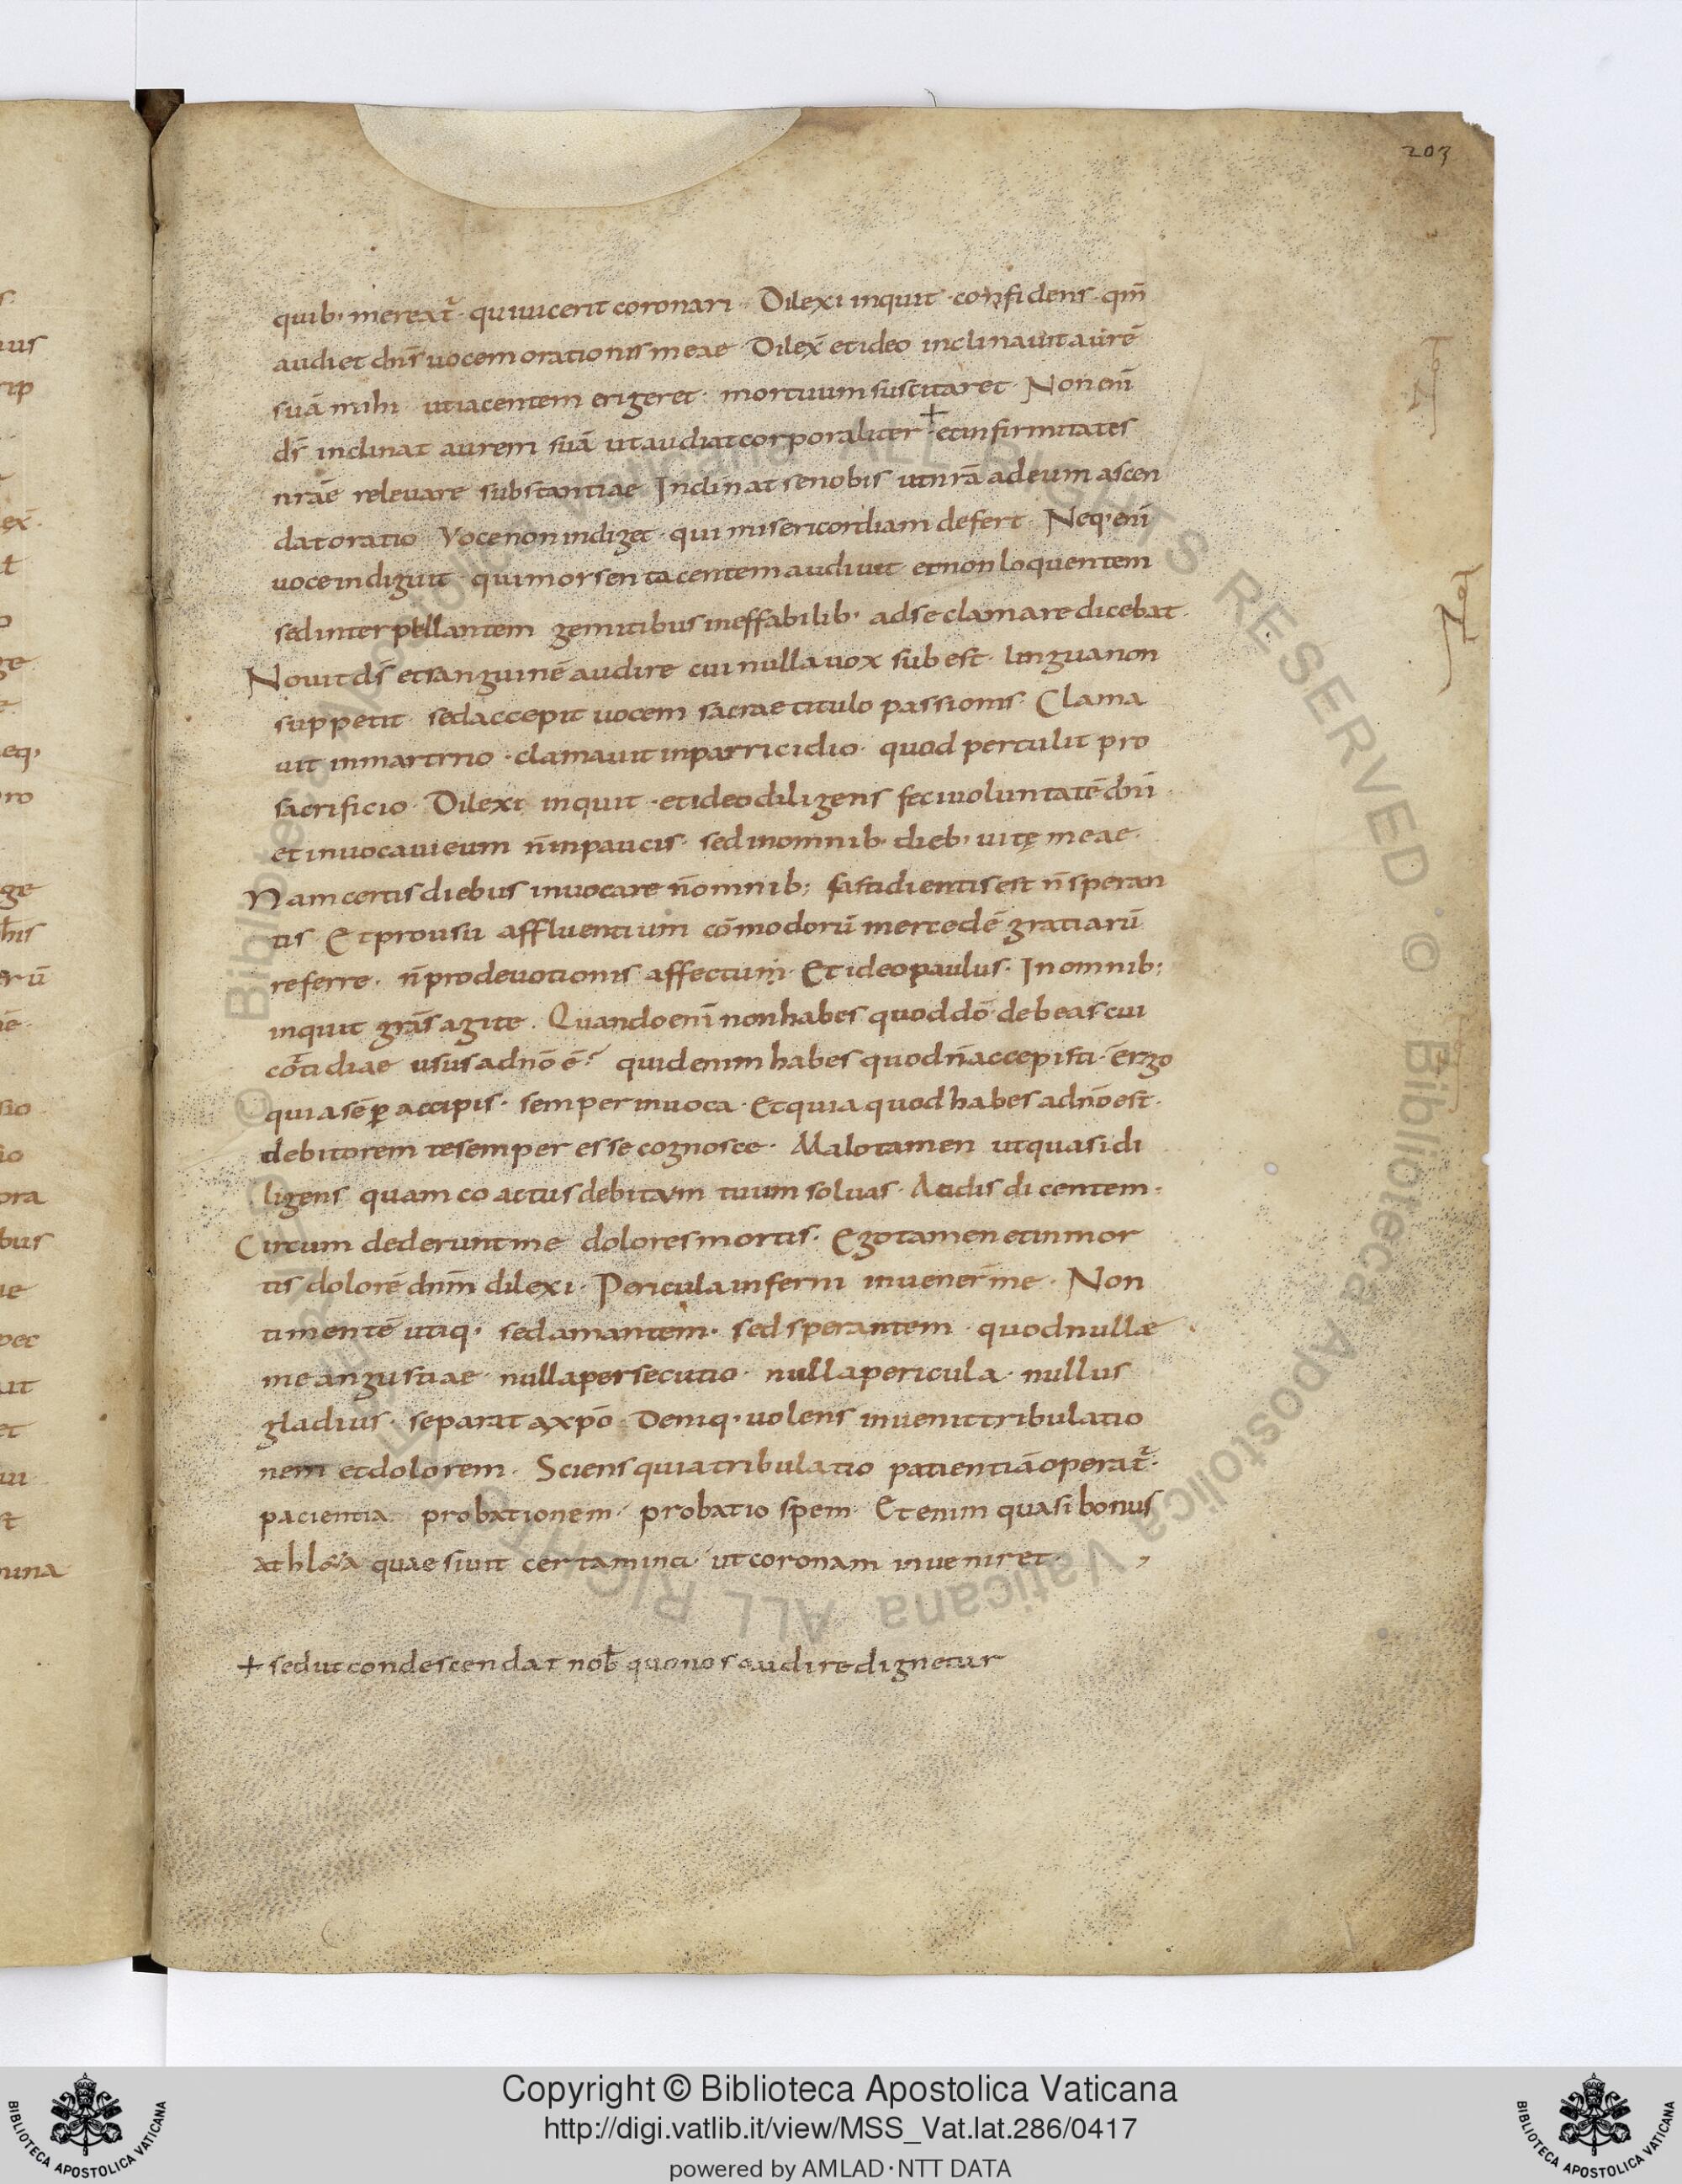 203
quib, mereat̄ · qui uicerit coronari · Dilexi inquit · confidens · qm̄
audiet dn̄s uocem orationis meae · Dilex̄ et ideo inclinauit aurē
suā mihi · ut iacentem erigeret · mortuum suscitaret · Non enī
ds̄ inclinat aurem suā ut audiat corporaliter + et infirmitates
nrāe releuare substantiae Inclinat se nobis ut nrā ad eum ascen
dat oratio Voce non indiget · qui misericordiam defert · Neq, enī
uoce indiguit · qui morsen tacentem audiuit · et non loquentem
sed interpellantem gemitibus ineffabilib, ad se clamare dicebat
Nouit ds̄ et sanguinē audire cui nulla uox subest · lingua non
suppetit · sed accepit uocem sacrae titulo passionis · Clama
uit in martirio · clamauit in parricidio · quod pertulit pro
sacrificio · Dilexi inquit · et ideo diligens feci uoluntatē dnī ·
et inuocaui eum n̄ in paucis · sed in omnib, dieb, uitę meae ·
Nam certis diebus inuocare n̄ omnib; fastidientis est n̄ speran
tis Et pro usu affluentium cōmodorū mercedē gratiarū
referre · n̄ pro deuotionis affectum · Et ideo paulus · In omnib;
inquit grās agite · Quando enī non habes quod dō debeas cui
cōtidiae usus a dnō ē? quid enim habes quod n̄ accepisti · ērgo
quia sēꝑ accipis · semper inuoca · Et quia quod habes a dnō est ·
debitorem te semper esse cognosce · Malo tamen ut quasi di
ligens quam coactus debitum tuum soluas · Audis dicentem ·
Circum dederunt me dolores mortis · Ego tamen et in mor
tis dolorē dnm̄ dilexi · Pericula inferni inuener̄ me · Non
timentē utiq, sed amantem · sed sperantem · quod nullæ
me angustiae · nulla persecutio · nulla pericula · nullus
gladius · separat a xpō · Deniq, uolens inuenit tribulatio
nem et dolorem · Sciens quia tribulatio patientiā operat̄ ·
pacientia probationem · probatio spem · Et enim quasi bonus
athl&a quaesiuit certamina · ut coronam inueniret ·
+ sed ut condescendat nob̄ quo nos audire dignetur
Copyright © Biblioteca Apostolica Vaticana
http://digi.vatlib.it/view/MSS_Vat.lat.286/0417
powered by AMLAD·NTT DATA
BIBLIOTECA APOSTOLICA VATICANA
BIBLIOTECA APOSTOLICA VATICANA